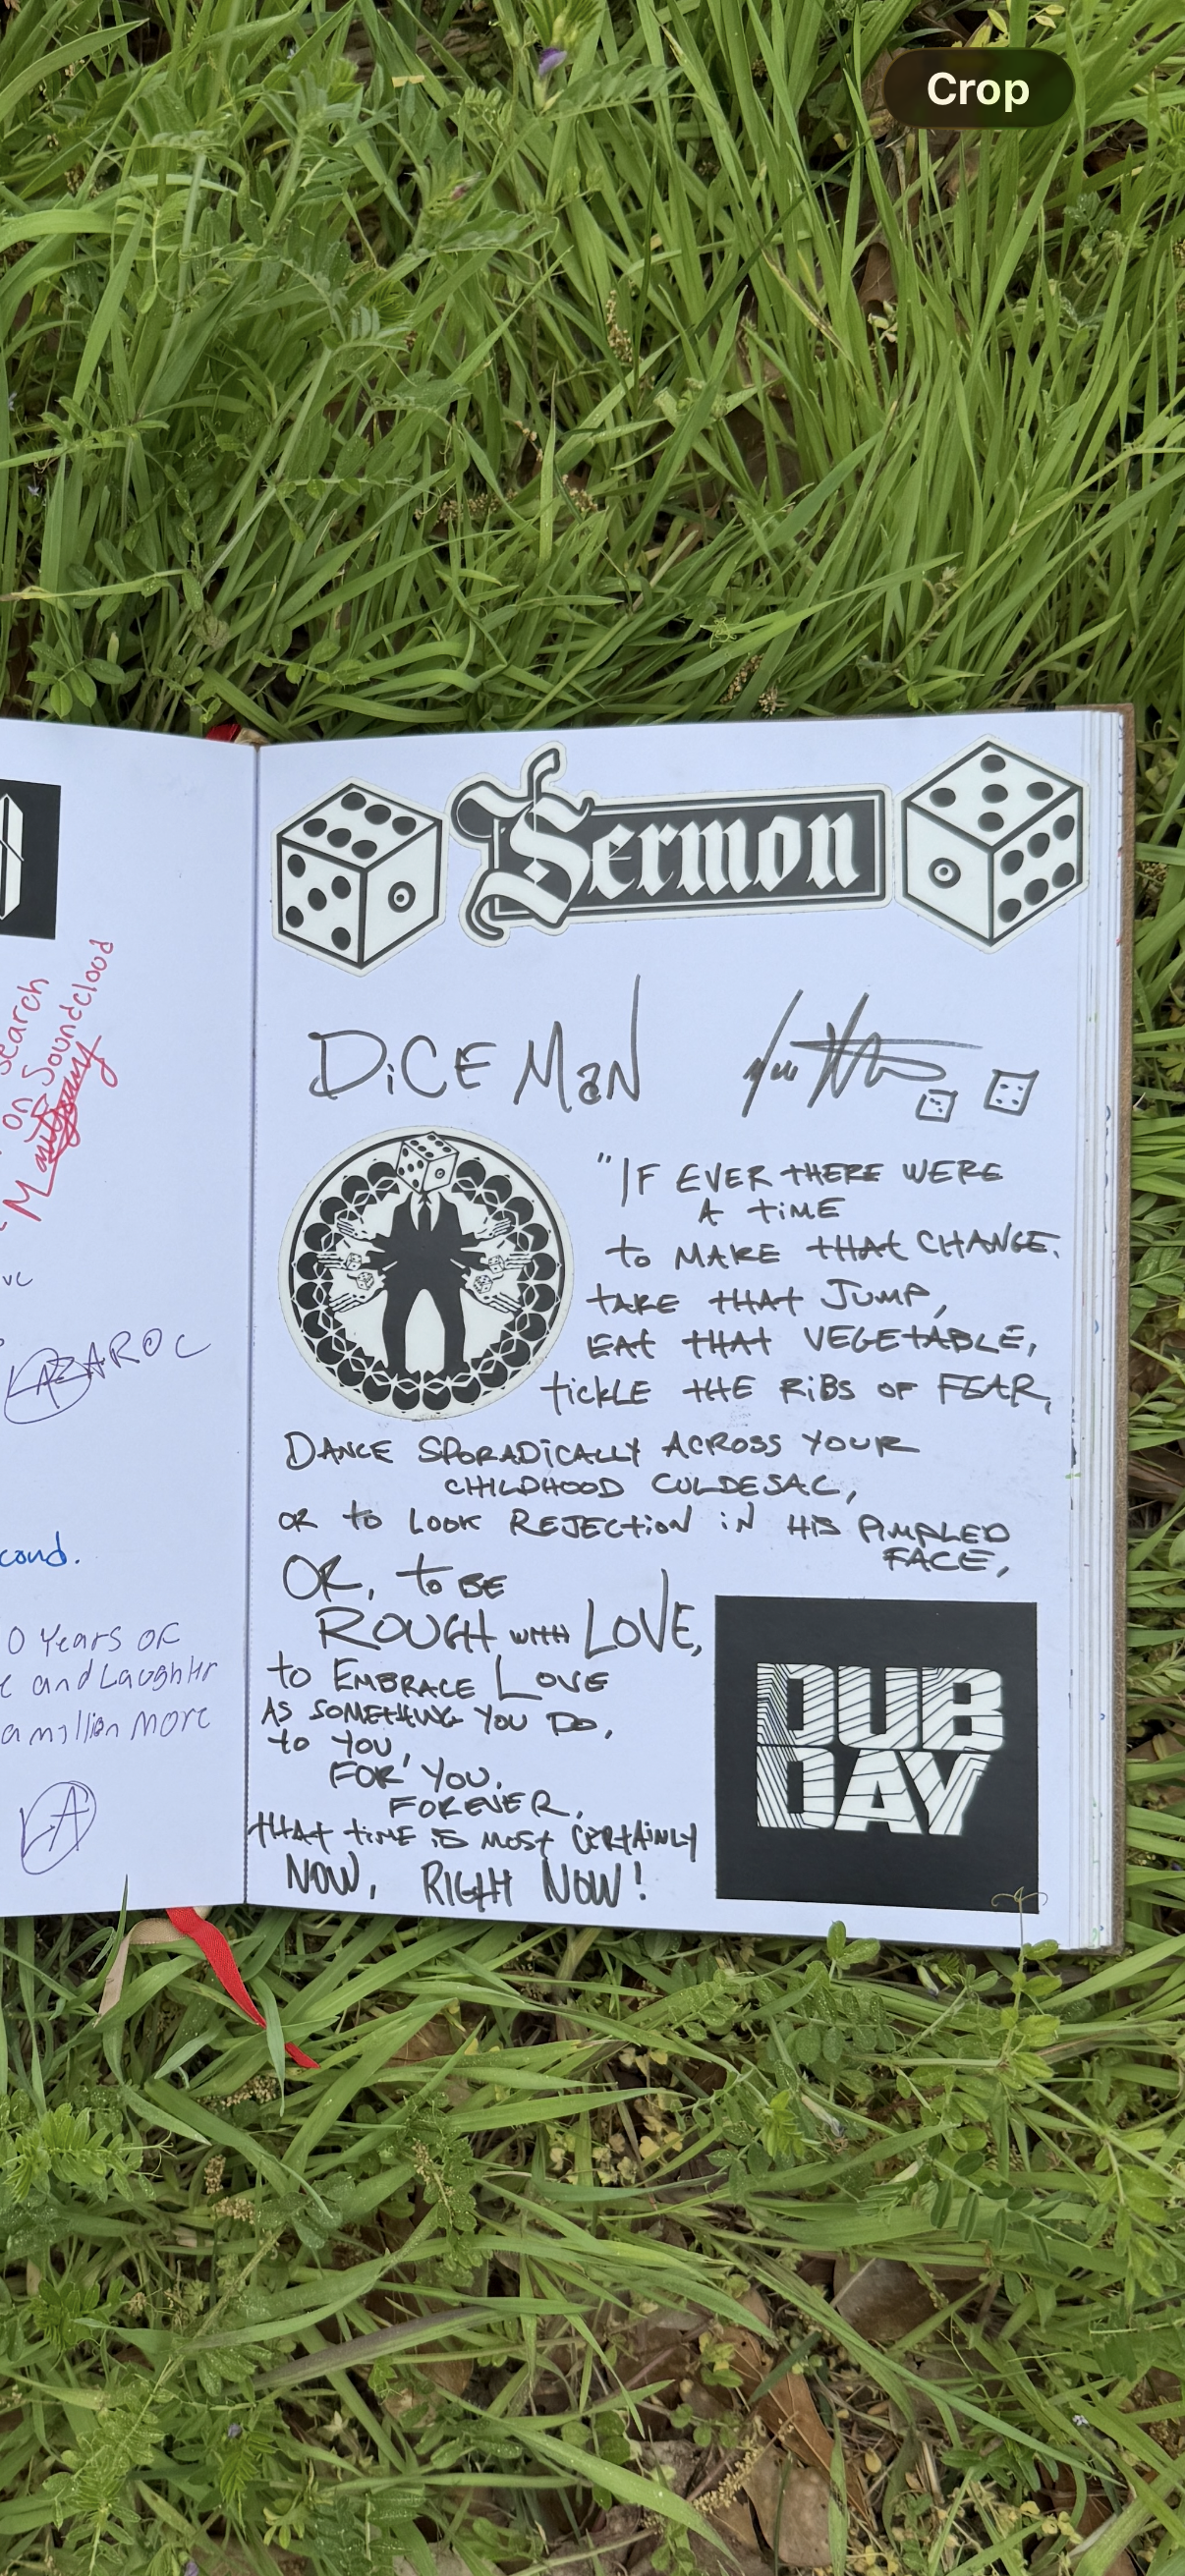 Crop
Sermon
DiCE MaN
"IF EVER THERE WERE
A TiME
to MAKE THAT CHANGE.
TAKE THAT JUMP,
EAT THAT VEGETABLE,
tickLE THE RiBS OF FEAR,
DANCE SPORADiCALLY ACROSS YOUR
CHILDHOOD CULDESAC,
OR to LOOK REJECTiON iN HiS PiMPLED
FACE,
OR, to BE
ROUGH WITH LOVE,
to EMBRACE LOVE
AS SOMETHING YOU DO,
to YOU,
FOR YOU,
FOREVER,
THAT TiME iS MOST CERTAiNLY
NOW, RIGHT NOW!
DUB
DAY
search
on Soundcloud
LAZAROC
cond.
0 Years OF
and Laughter
a million More